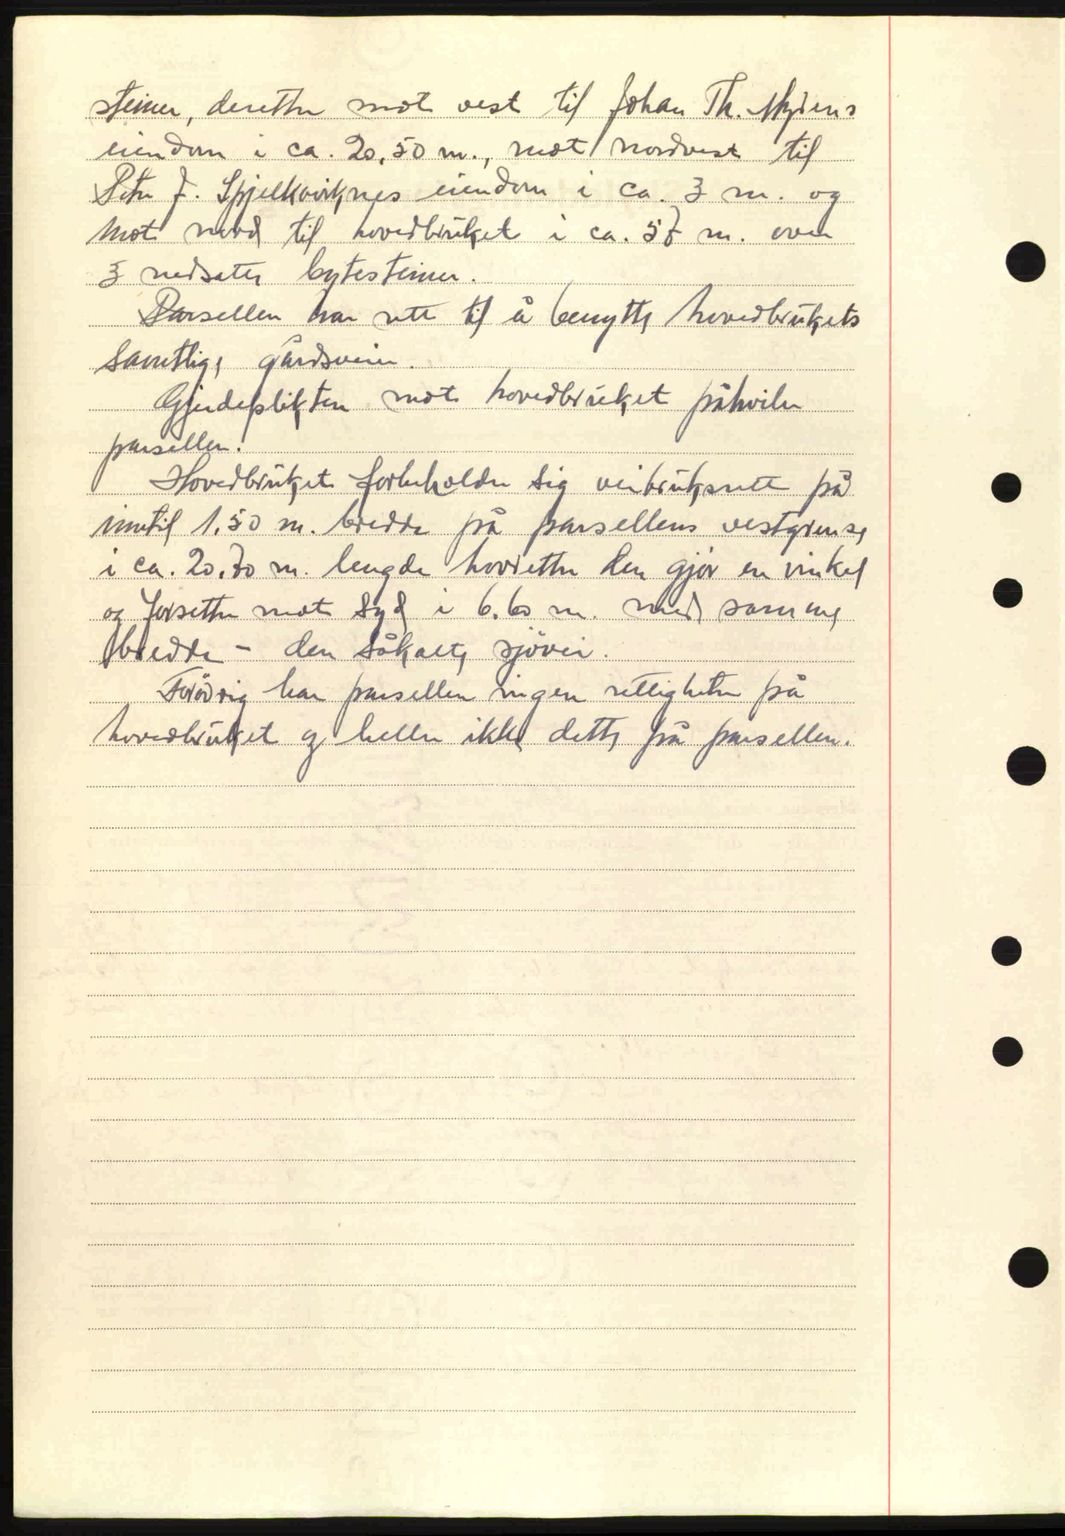 steiner, deretter mot vest til Johan Th. Myrens
eiendom i ca. 20,50 m., mot nordvest til
Peter J. Spjelkaviknes eiendom i ca. 3 m. og
mot nord til hovedbruket i ca. 57 m. over
3 nedsatte bytesteiner.
Parsellen har rett til å benytte hovedbrukets
samtlige gårdsveier.
Gjerdeplikten mot hovedbruket påhviler
parsellen.
Hovedbruket forbeholder sig veibruksrett på
inntil 1.50 m. bredde på parsellens vestgrense
i ca. 20.70 m. lengde hvoretter den gjør en vinkel
og forsetter mot syd i 6.60 m. med samme
bredde - den såkalte sjövei.
Forövrig har parsellen ingen rettigheter på
hovedbruket og heller ikke dette på parsellen.